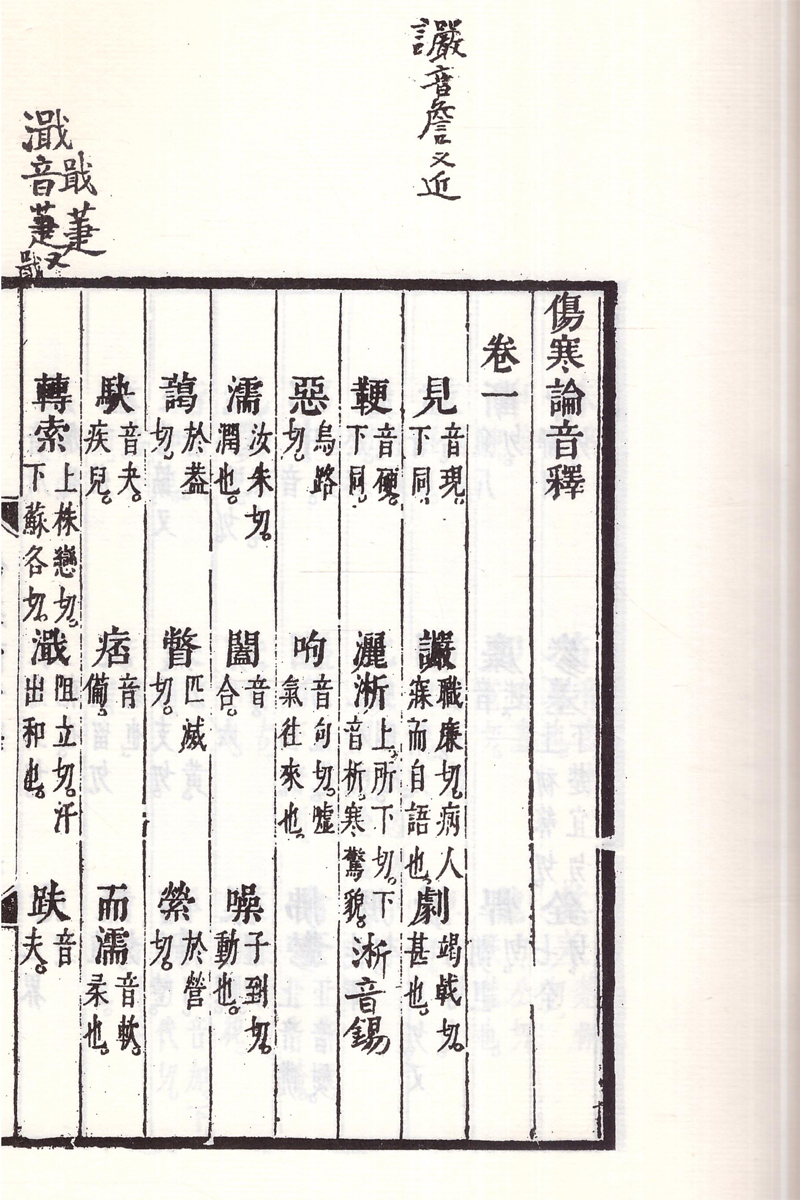 讝音詹又近
濈音蓽又
戢蓽
傷寒論音釋
卷一
見音現。下同。 讝職廉切。病人寐而自語也。 劇竭戟切。甚也。
鞕音硬。下同。 灑淅上所下切。下音析。寒驚貌。 淅音錫
惡烏路切。 呴音句切。嘘氣往來也。
濡汝朱切。潤也。 闔音合。 噪子到切。動也。
藹於蓋切。 瞥匹滅切。 縈於營切。
駃音夬。疾皃。 痞音備。 而濡音軟。柔也。
轉索上株戀切。下蘇各切。 濈阻立切。汗出和也。 趺音夫。